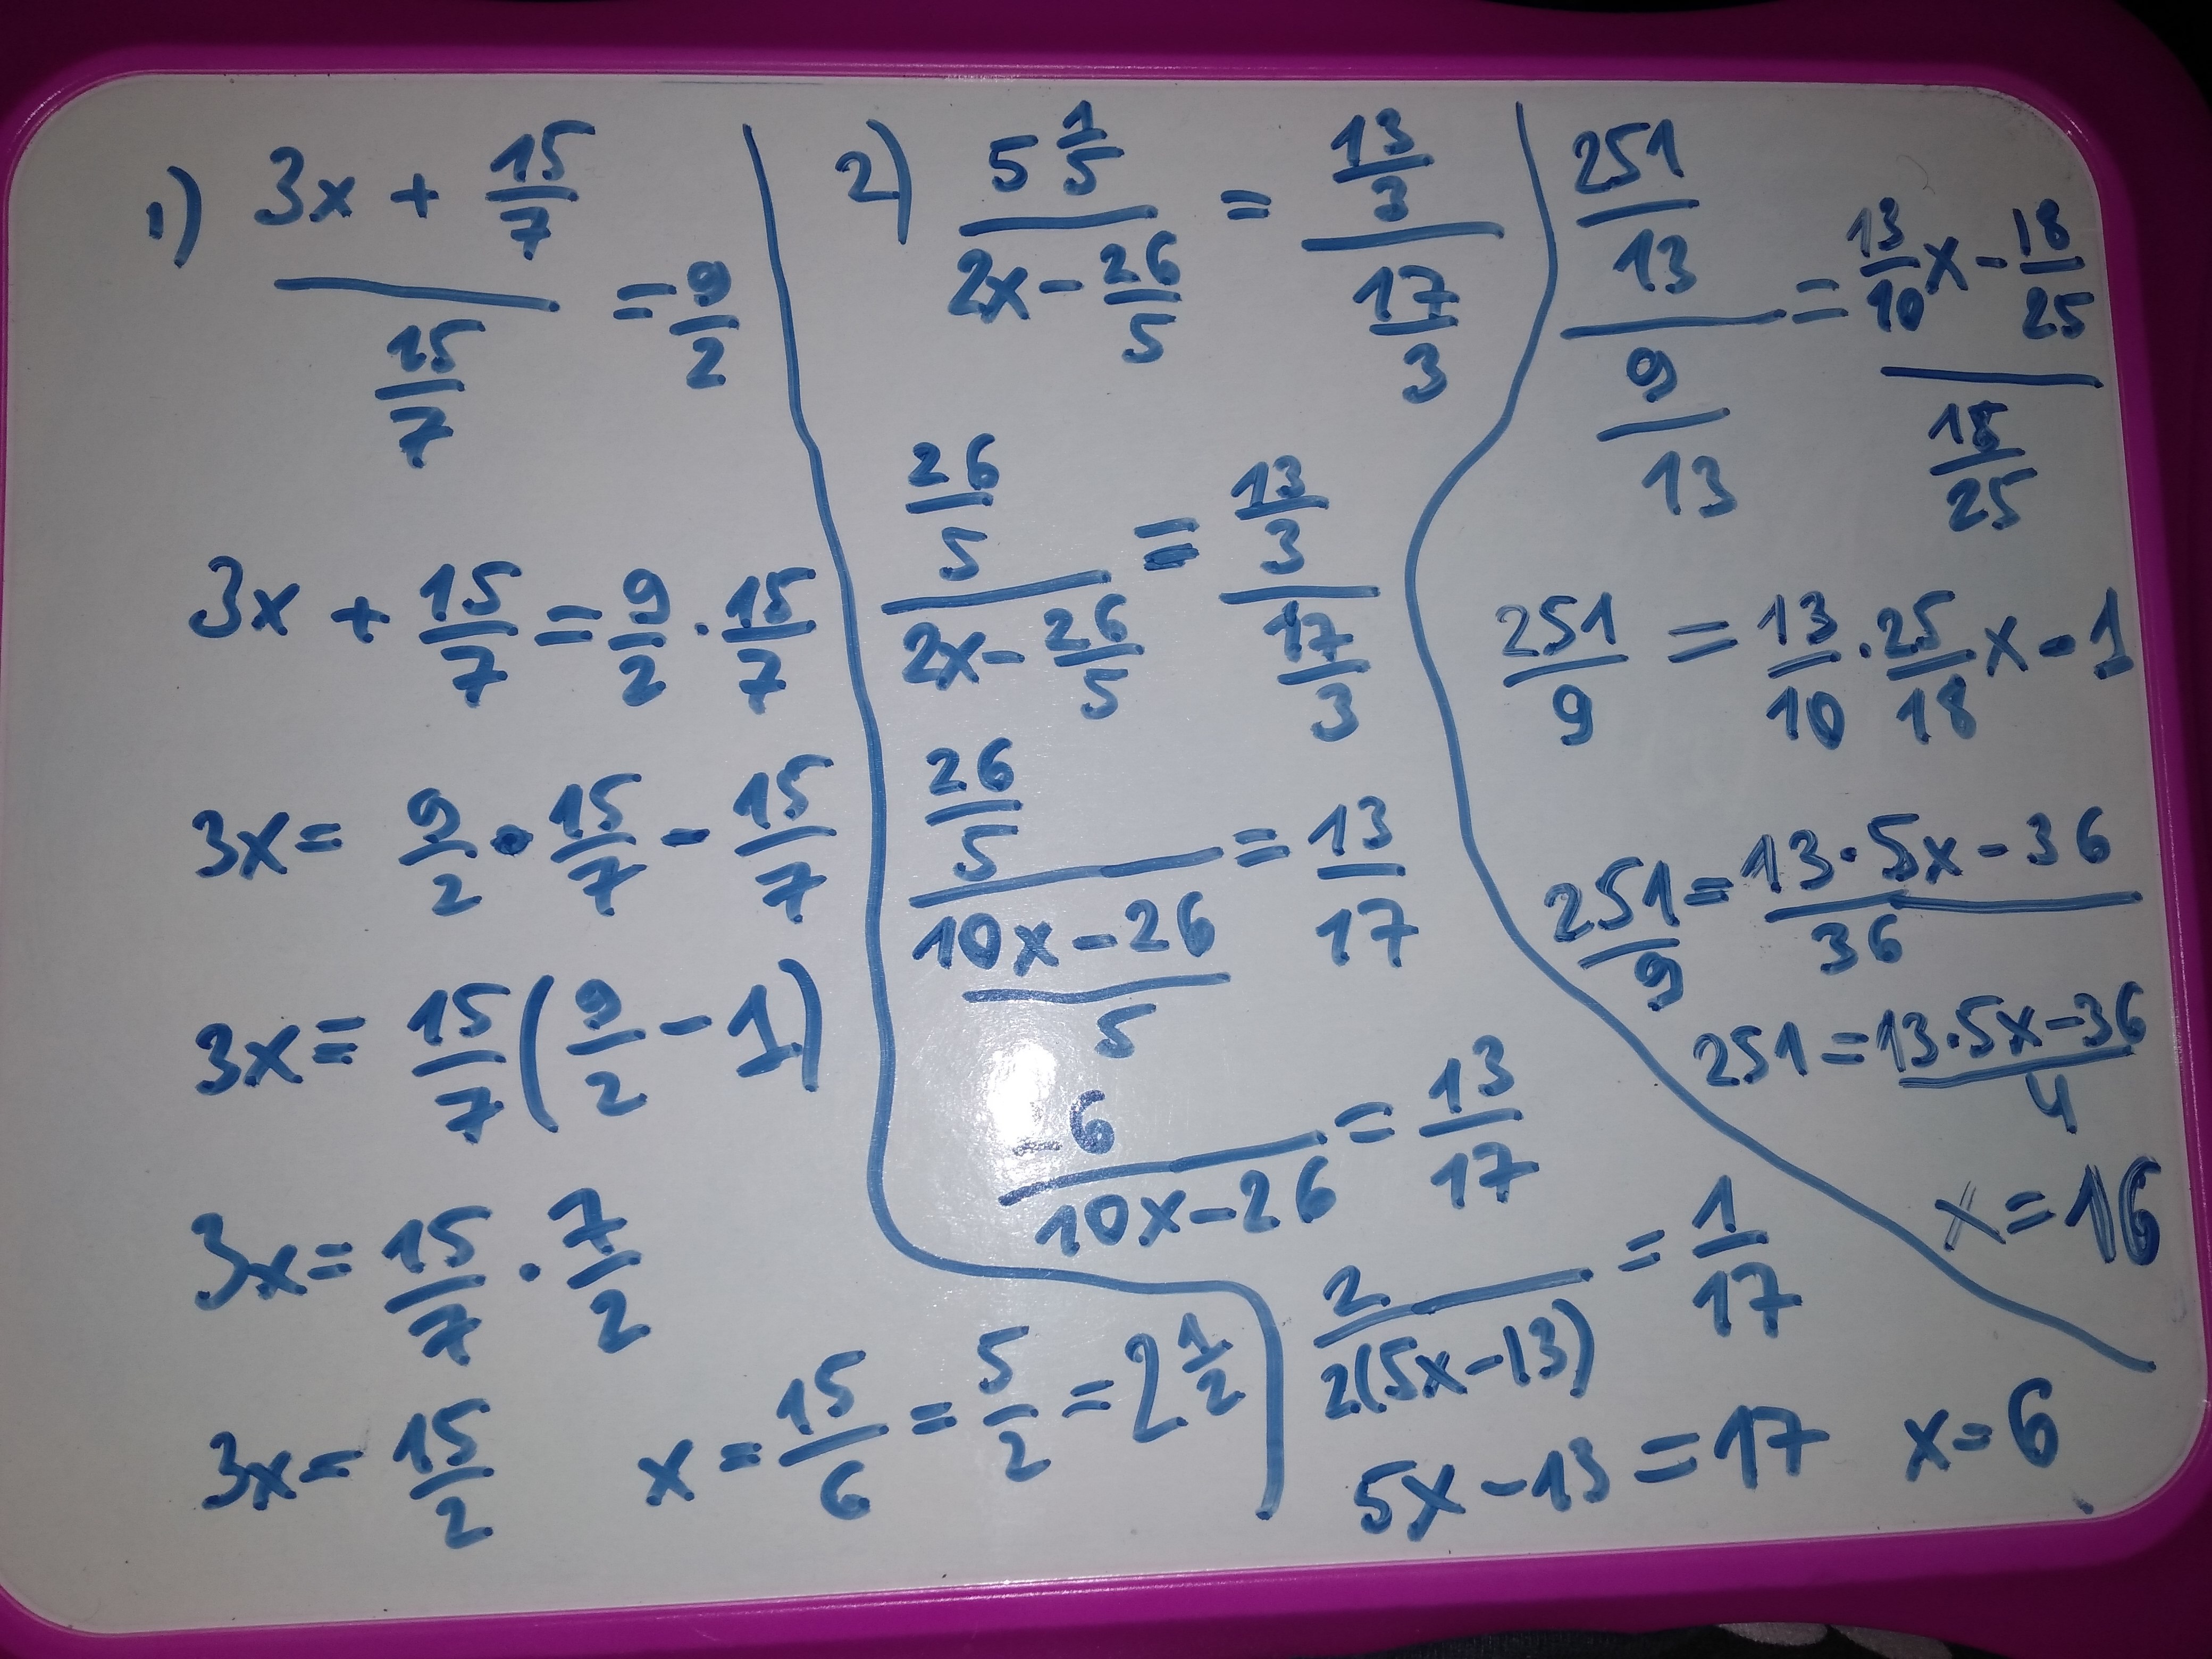 1) (3x + 15/7) / (15/7) = 9/2
3x + 15/7 = 9/2 · 15/7
3x = 9/2 · 15/7 - 15/7
3x = 15/7 (9/2 - 1)
3x = 15/7 · 7/2
3x = 15/2 x = 15/6 = 5/2 = 2 1/2
2) (5 1/5) / (2x - 26/5) = (13/3) / (17/3)
(26/5) / (2x - 26/5) = (13/3) / (17/3)
(26/5) / ((10x - 26)/5) = 13/17
/ (10x - 26) = 13/17
2 / (2(5x - 13)) = 1/17
5x - 13 = 17 x = 6
(251/13) / (9/13) = (13/10 x - 18/25) / (18/25)
251/9 = 13/10 · 25/18 x - 1
251/9 = (13 · 5x - 36) / 36
251 = (13 · 5x - 36) / 4
x = 16